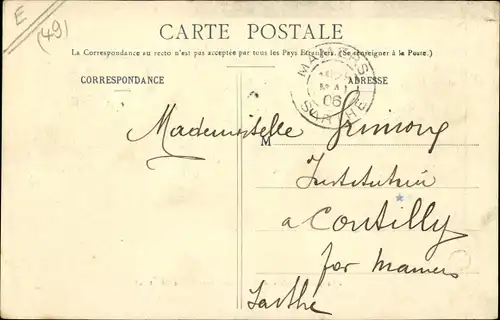 E
(49)
CARTE POSTALE
La Correspondance au recto n'est pas acceptée par tous les Pays Etrangers. (Se renseigner à la Poste.)
CORRESPONDANCE
ADRESSE
MAMERS
MAI
06
SARTHE
Mademoiselle
M
Institutrice
a Contilly
par Mamers
Sarthe